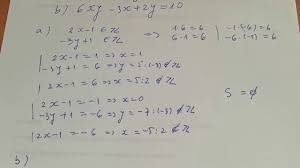 b) 6xy - 3x + 2y = 10
a) 2x-1 ∈ ℤ
-3y+1 ∈ ℤ
⇒ 1·6 = 6
6·1 = 6
-1·(-6) = 6
-6·(-1) = 6
2x-1 = 1 ⇒ x = 1
-3y+1 = 6 ⇒ y = 5:(-3) ∉ ℤ
2x-1 = 6 ⇒ x = 5:2 ∉ ℤ
2x-1 = -1 ⇒ x = 0
-3y+1 = -6 ⇒ y = -7:(-3) ∉ ℤ
S = ∅
2x-1 = -6 ⇒ x = -5:2 ∉ ℤ
b)